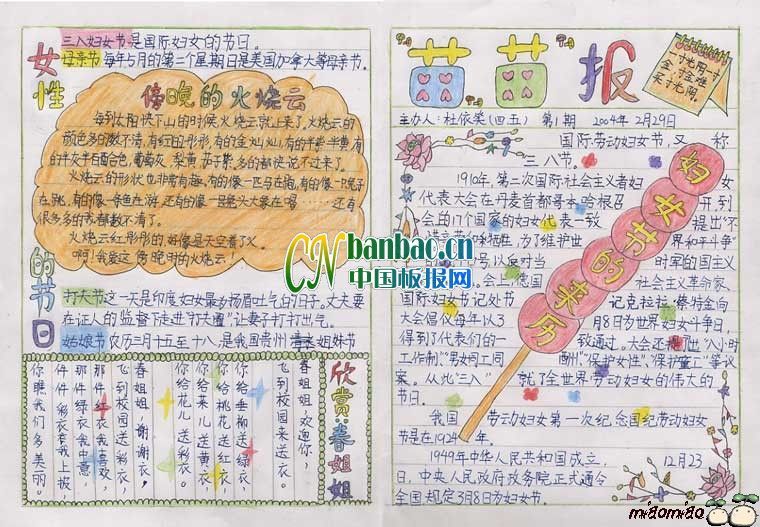 女性的节日
三八妇女节是国际妇女的节日。
母亲节 每年5月的第二个星期日是美国加拿大等母亲节。
傍晚的火烧云
每到太阳快下山的时候火烧云就上来了。火烧云的
颜色多的数不清,有红彤彤,有的金灿灿,有的半紫半黄,有
的半灰半百合色,葡萄灰、梨黄、茄子紫,多的都说不过来了。
火烧云的形状也非常有趣,有的像一匹马在跑,有的像一只兔子
在跳,有的像一条鱼在游,还有的像一只
很多多的我都数不清了。
火烧云红彤彤的,好像是天空着了火。
啊!我爱这傍晚时的火烧云!
打夫节 这一天是印度妇女最多扬眉吐气的日子。丈夫要
在证人的监督下走进“打夫圈”让妻子打打出气。
姑娘节 农历二月十五至十八,是我国贵州 姐妹节
欣赏:春姐姐
春姐姐,欢迎你,
飞到校园来送衣。
你给垂柳送绿衣,
你给桃花送红衣,
你给菜儿送黄衣,
你给花儿送彩衣。
春姐姐,谢谢衣,
飞到校园送彩衣,
那件红衣我喜欢,
件件绿衣我中意,
件件彩衣套我上披,
你瞧我们多美丽。
CNbanbao.cn
中国板报网
苗苗报
一寸光阴一寸
金,寸金难
买寸光阴。
主办人:杜依笑(四五) 第1期 2004年2月29日
妇女节的来历
国际劳动妇女节,又称
三八节。
1910年,第二次国际社会主义者妇女
代表大会在丹麦首都哥本哈根召开,到
会的17个国家的妇女代表一致提出“不
为了维护世界和平斗争”
号以反对当时军国的军国主义
会上,德国社会主义革命家
国际妇女节记处书记克拉拉·蔡特金向
大会倡议每年以3月8日为世界妇女斗争日
得到了代表们的一致通过。大会还提出“八小时
工作制”、“男女同工同酬”“保护女性”、“保护童工”等议
案。从此“三八”就了全世界劳动妇女的伟大的
节日。
我国劳动妇女第一次纪念国纪劳动妇女
节是在1924年。
1949年中华人民共和国成立,12月23
日,中央人民政府政务院正式通令
全国规定3月8日为妇女节。
miaomiao